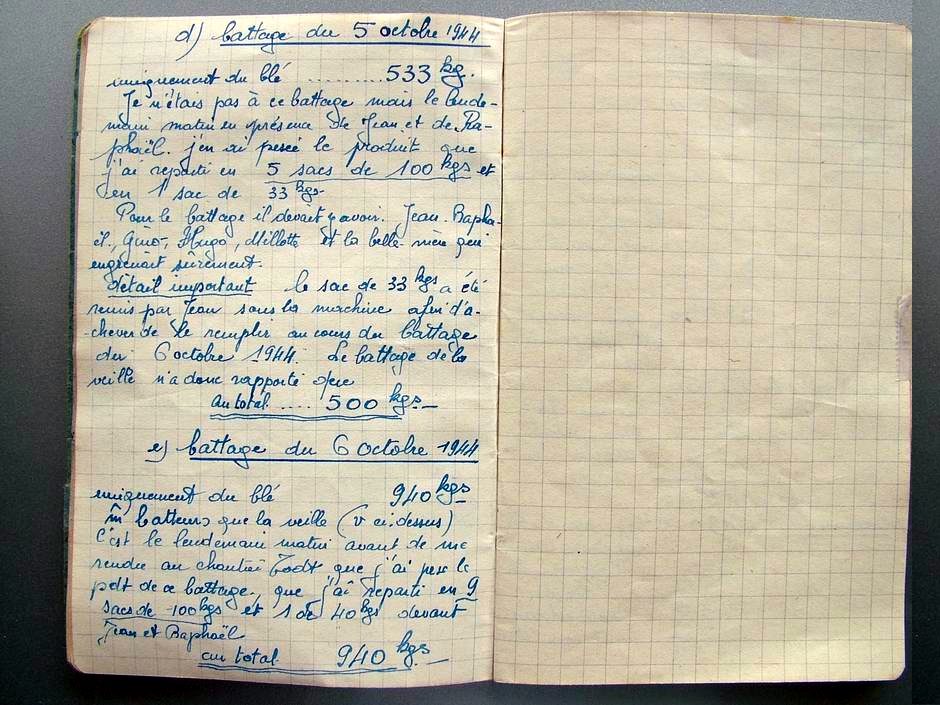 d) battage du 5 octobre 1944
uniquement du blé ......... 533 kg.
Je n'étais pas à ce battage mais le lende-
main matin en présence de Jean et de Ra-
phaël. j'en ai pesée le produit que
j'ai reparti en 5 sacs de 100 kgs et
en 1 sac de 33 kgs.
Pour le battage il devait y avoir. Jean. Rapha-
ël., Gino, Hugo, Millotte et la belle-mère qui
engrenait sûrement.
détail important le sac de 33 kgs a été
remis par Jean sous la machine afin d'a-
chever de le remplir au cours du battage
du 6 octobre 1944. Le battage de la
veille n'a donc rapporté que
au total .... 500 kgs.
e) battage du 6 octobre 1944
uniquement du blé 940 kgs
m̂ batteurs que la veille (v ci.dessus)
C'est le lendemain matin avant de me
rendre au chantier Todt que j'ai pesé le
pdt de ce battage, que j'ai reparti en 9
sacs de 100 kgs et 1 de 40 kgs devant
Jean et Raphaël
au total 940 kgs.